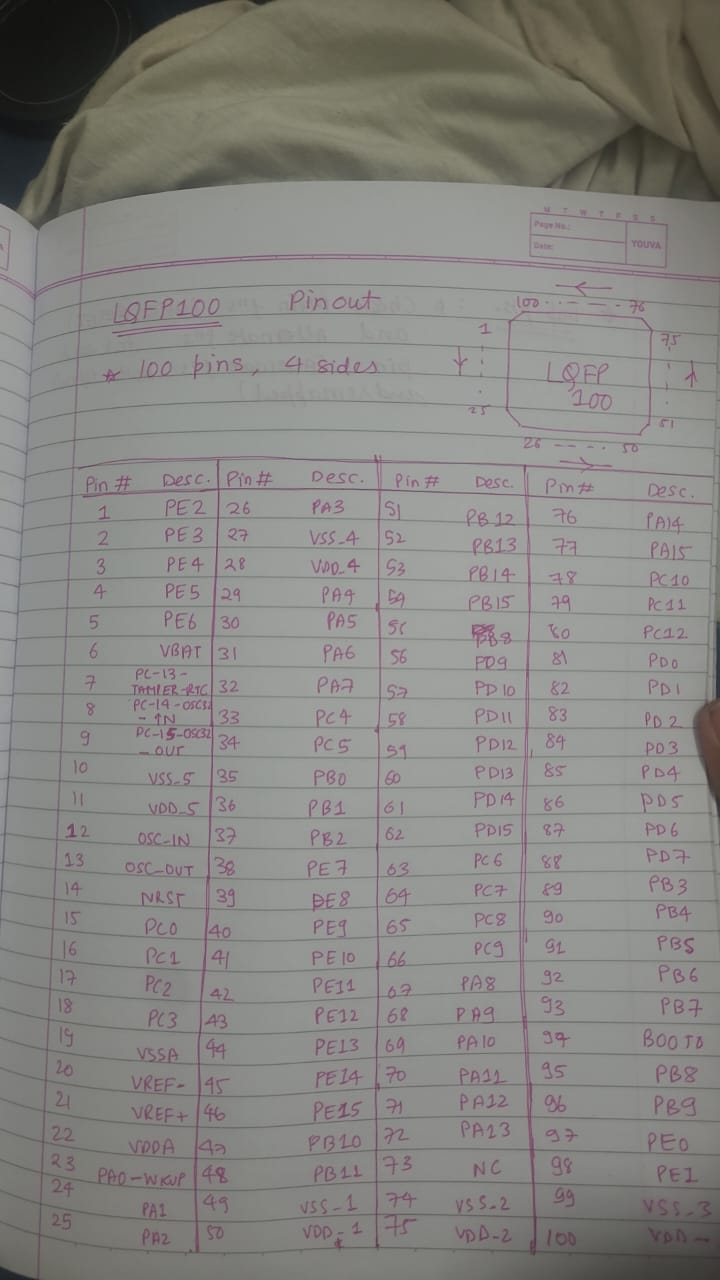 M T W T F S S
Page No.:
Date:
YOUVA
LQFP100 Pinout
* 100 pins, 4 sides
100 76
1 75
LQFP
100
25 51
26 50
Pin # Desc. Pin # Desc. Pin # Desc. Pin # Desc.
1 PE2 26 PA3 51 PB12 76 PA14
2 PE3 27 VSS_4 52 PB13 77 PA15
3 PE4 28 VDD_4 53 PB14 78 PC10
4 PE5 29 PA4 54 PB15 79 PC11
5 PE6 30 PA5 55 8 80 PC12
6 VBAT 31 PA6 56 PD9 81 PD0
7 PC-13-TAMPER-RTC 32 PA7 57 PD10 82 PD1
8 PC-14-OSC32-IN 33 PC4 58 PD11 83 PD2
9 PC-15-OSC32-OUT 34 PC5 59 PD12 84 PD3
10 VSS_5 35 PB0 60 PD13 85 PD4
11 VDD_5 36 PB1 61 PD14 86 PD5
12 OSC-IN 37 PB2 62 PD15 87 PD6
13 OSC_OUT 38 PE7 63 PC6 88 PD7
14 NRST 39 PE8 64 PC7 89 PB3
15 PC0 40 PE9 65 PC8 90 PB4
16 PC1 41 PE10 66 PC9 91 PB5
17 PC2 42 PE11 67 PA8 92 PB6
18 PC3 43 PE12 68 PA9 93 PB7
19 VSSA 44 PE13 69 PA10 94 BOOT0
20 VREF- 45 PE14 70 PA11 95 PB8
21 VREF+ 46 PE15 71 PA12 96 PB9
22 VDDA 47 PB10 72 PA13 97 PE0
23 PA0-WKUP 48 PB11 73 NC 98 PE1
24 PA1 49 VSS_1 74 VSS_2 99 VSS_3
25 PA2 50 VDD_1 75 VDD_2 100 VDD_